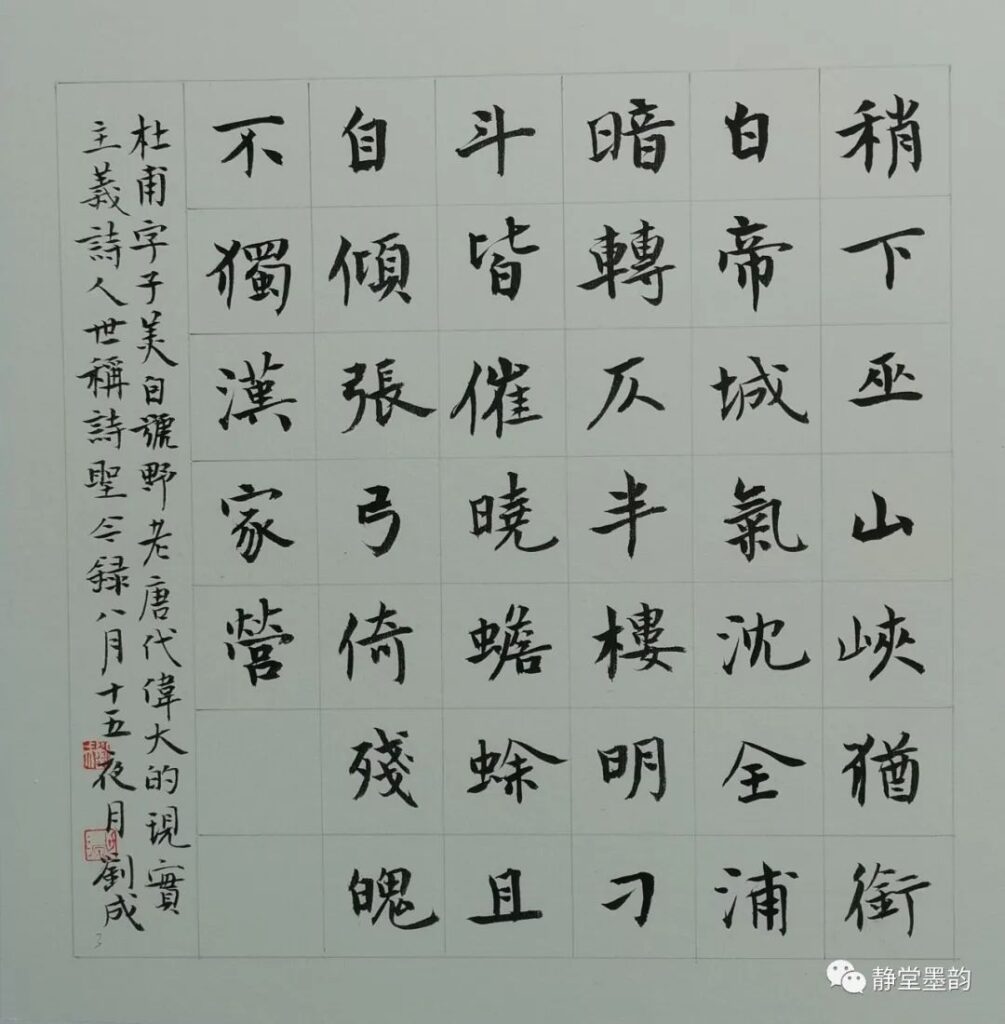 稍下巫山峽猶銜
白帝城氣沈全浦
暗轉仄半樓明刁
斗皆催曉蟾蜍且
自傾張弓倚殘魄
不獨漢家營
杜甫字子美自號野老唐代偉大的現實
主義詩人世稱詩聖今録八月十五夜月劉成
静堂墨韵